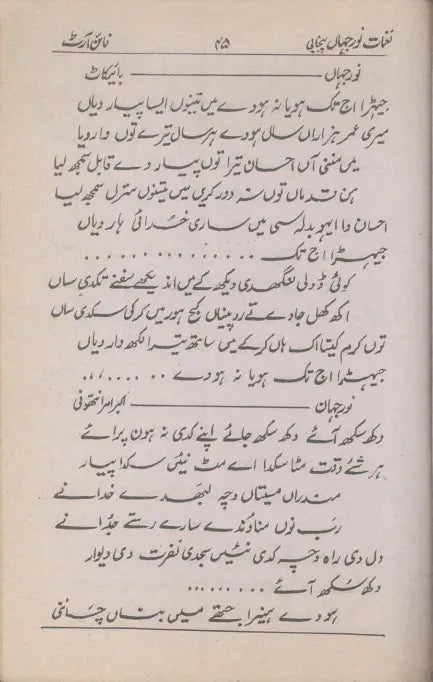 نغمات نورجہاں پنجابی ۴۵ فائن آرٹ
نورجہاں بائیکاٹ
جیہڑا اج تک ہویا نہ ہووے میں تینوں ایسا پیار دیاں
میری عمر ہزاراں سال ہووے ہر سال تیرے توں وار دیا
میں منی آں احسان تیرا توں پیار دے قابل سمجھ لیا
ہن قدماں توں نہ دور کریں میں تینوں منزل سمجھ لیا
احسان دا ایہو بدلہ سی میں ساری خدائی ہار دیاں
جیہڑا اج تک . . . . . . . . . . . . . . .
کوئی ڈولی لنگھدی ویکھ کے میں انذ یکھے سفنے تکدی ساں
اکھ کھل جاوے تے روپیناں کج ہور میں کر کی سکدی ساں
توں کرم کیتا اک ہاں کر کے میں ساتھ تیرا لکھ وار دیاں
جیہڑا اج تک ہویا نہ ہووے . . . . . . .
نورجہان اکبر امر انتھونی
دکھ سکھ آئے دکھ سکھ جائے اپنے کدی نہ ہون پرائے
ہر شئے وقت مٹا سکدا اے مٹ نیئں سکدا پیار
مندراں میتاں وچہ لبھدے خدا نے
رب نوں مناوندے سارے رستے جدا نے
دل دی راہ وچہ کدی نئیں سجدی نفرت دی دیوار
دکھ سکھ آئے . . . . . . . . .
ہووے ہنیرا جتھے میں بناں چانن